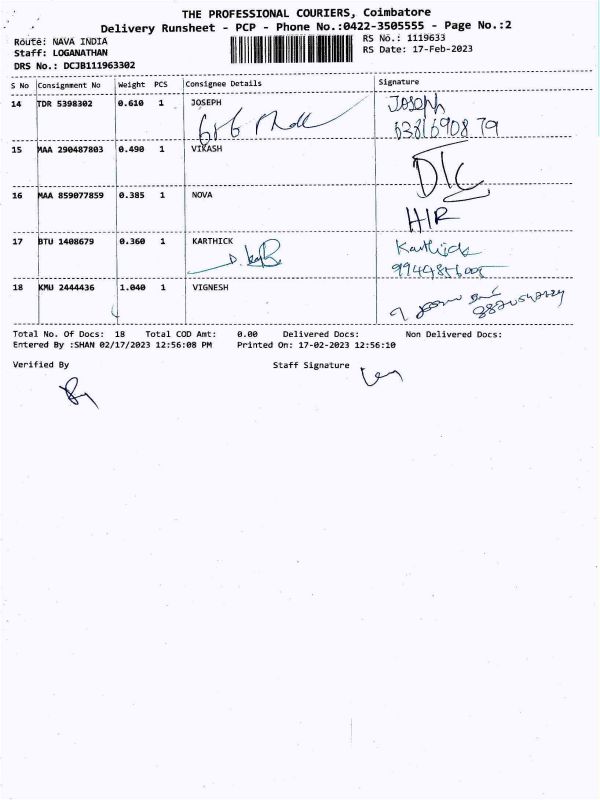 THE PROFESSIONAL COURIERS, Coimbatore
Delivery Runsheet - PCP - Phone No.:0422-3505555 - Page No.:2
Route: NAVA INDIA
RS No.: 1119633
Staff: LOGANATHAN
RS Date: 17-Feb-2023
DRS No.: DCJB111963302
S No Consignment No Weight PCS Consignee Details Signature
14 TDR 5398302 0.610 1 JOSEPH Joseph
6381690879
15 MAA 290487803 0.490 1 VIKASH D/C
16 MAA 859077859 0.385 1 NOVA H/R
17 BTU 1408679 0.360 1 KARTHICK Karthick
18 KMU 2444436 1.040 1 VIGNESH
Total No. Of Docs: 18 Total COD Amt: 0.00 Delivered Docs: Non Delivered Docs:
Entered By :SHAN 02/17/2023 12:56:08 PM Printed On: 17-02-2023 12:56:10
Verified By Staff Signature